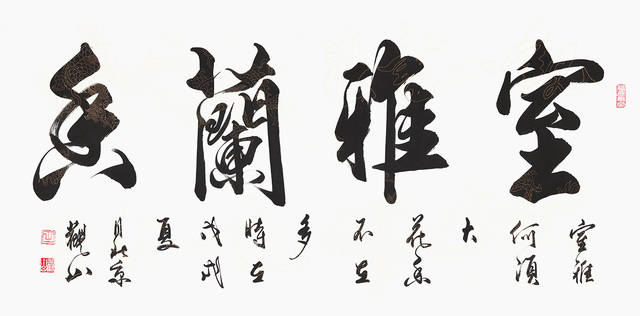 室雅蘭香
室雅
何須
大
花香
不在
多
時在
戊戌
夏
月北京
觀山